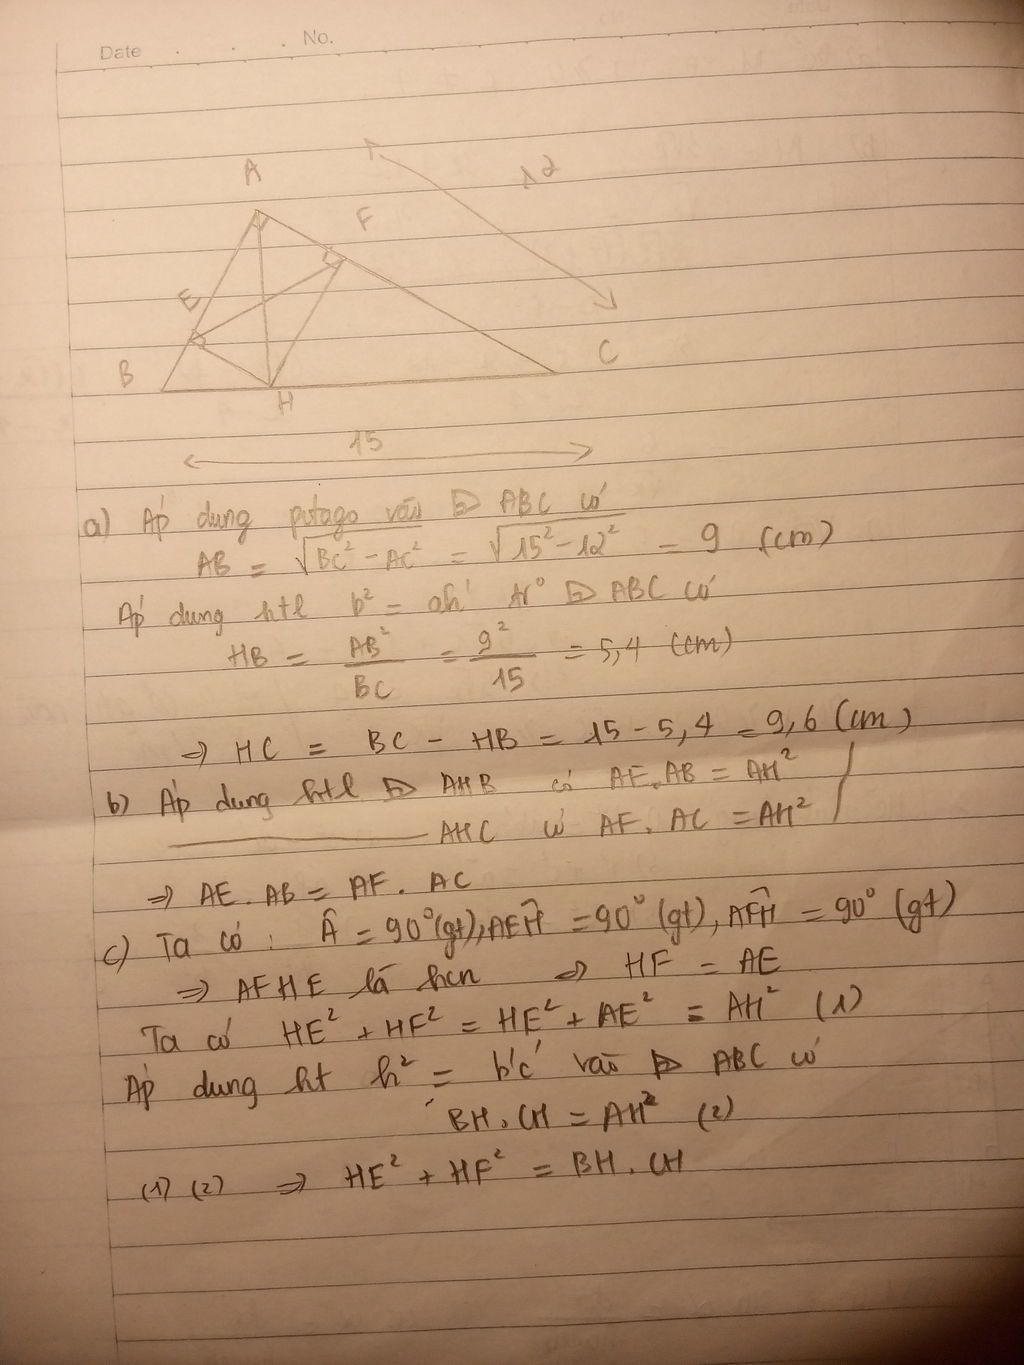 Date . . . No.
A
12
F
E
B
C
H
15
a) Áp dụng pytago vào ⊵ ABC có
AB = √BC² - AC² = √15² - 12² = 9 (cm)
Áp dụng htl b² = ab' ⊵ ABC có
HB = AB²/BC = 9²/15 = 5,4 (cm)
⇒ HC = BC - HB = 15 - 5,4 = 9,6 (cm)
b) Áp dụng htl ⊵ AHB có AE.AB = AH²
AHC có AF. AC = AH²
⇒ AE.AB = AF. AC
c) Ta có : Â = 90° (gt), AEH = 90° (gt), AFH = 90° (gt)
⇒ AFHE là hcn ⇒ HF = AE
Ta có HE² + HF² = HE² + AE² = AH² (1)
Áp dụng ht h² = b'c' vào ⊵ ABC có
BH.CH = AH² (2)
(1) (2) ⇒ HE² + HF² = BH.CH